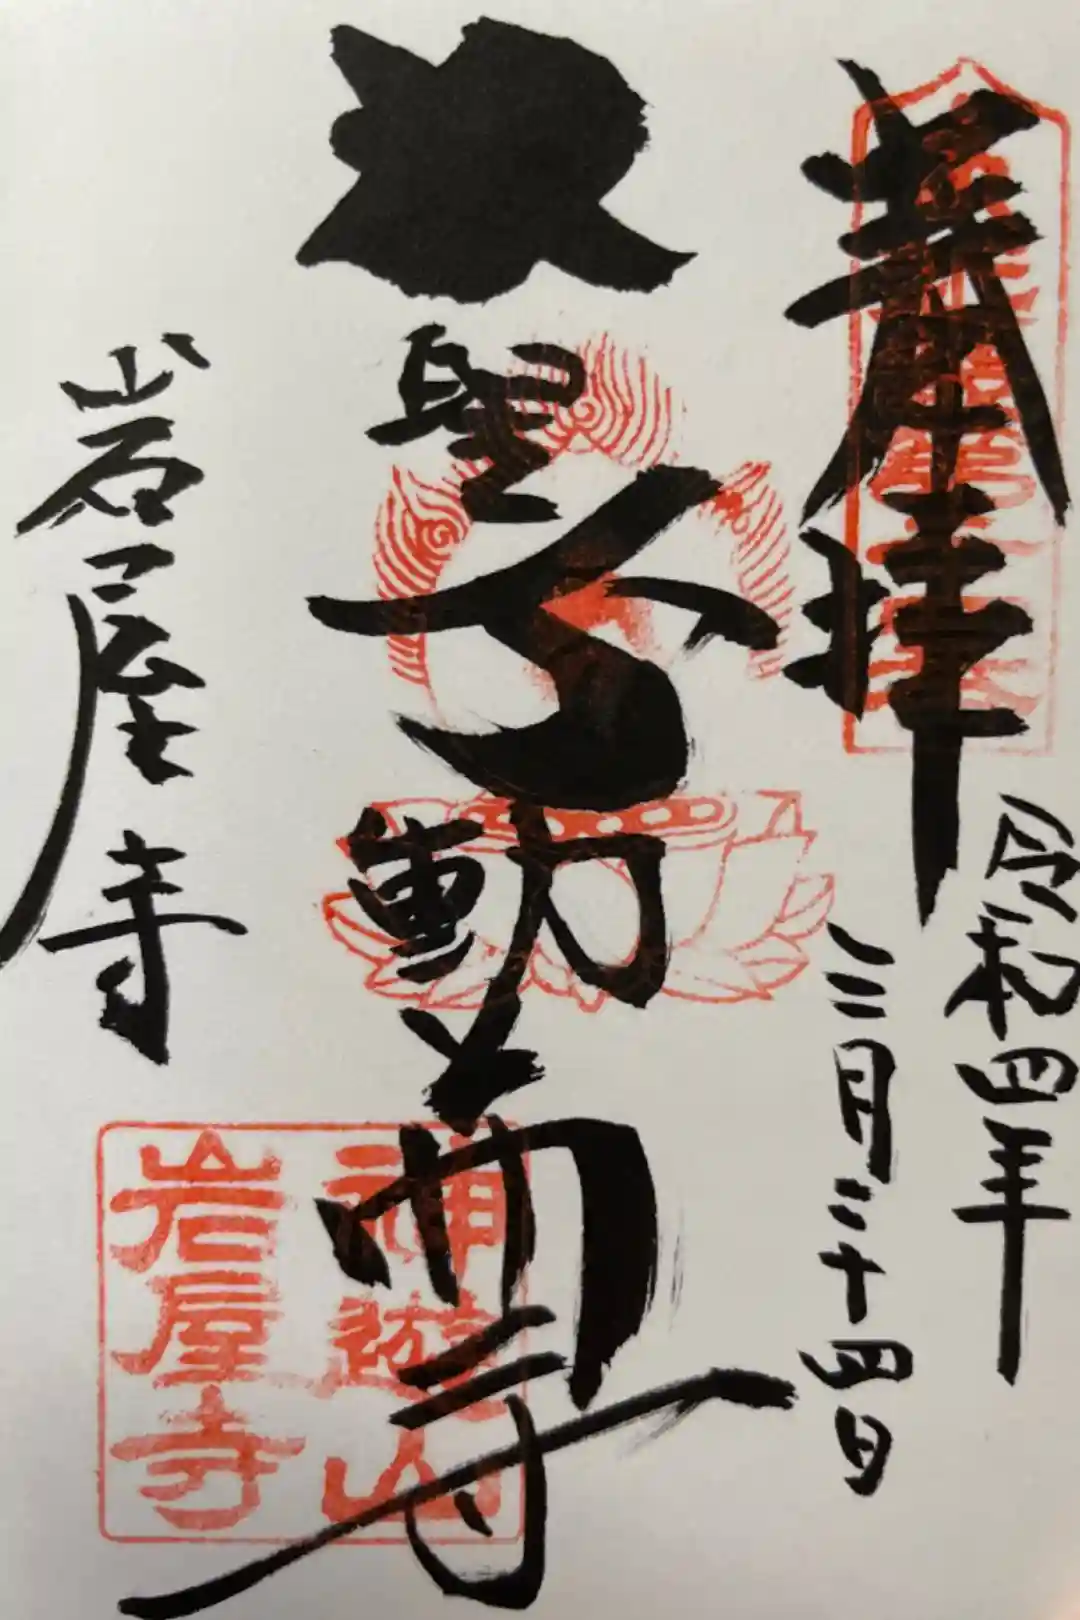 奉拝
令和四年
三月二十四日
聖不動尊
岩屋寺
神遊山
岩屋寺